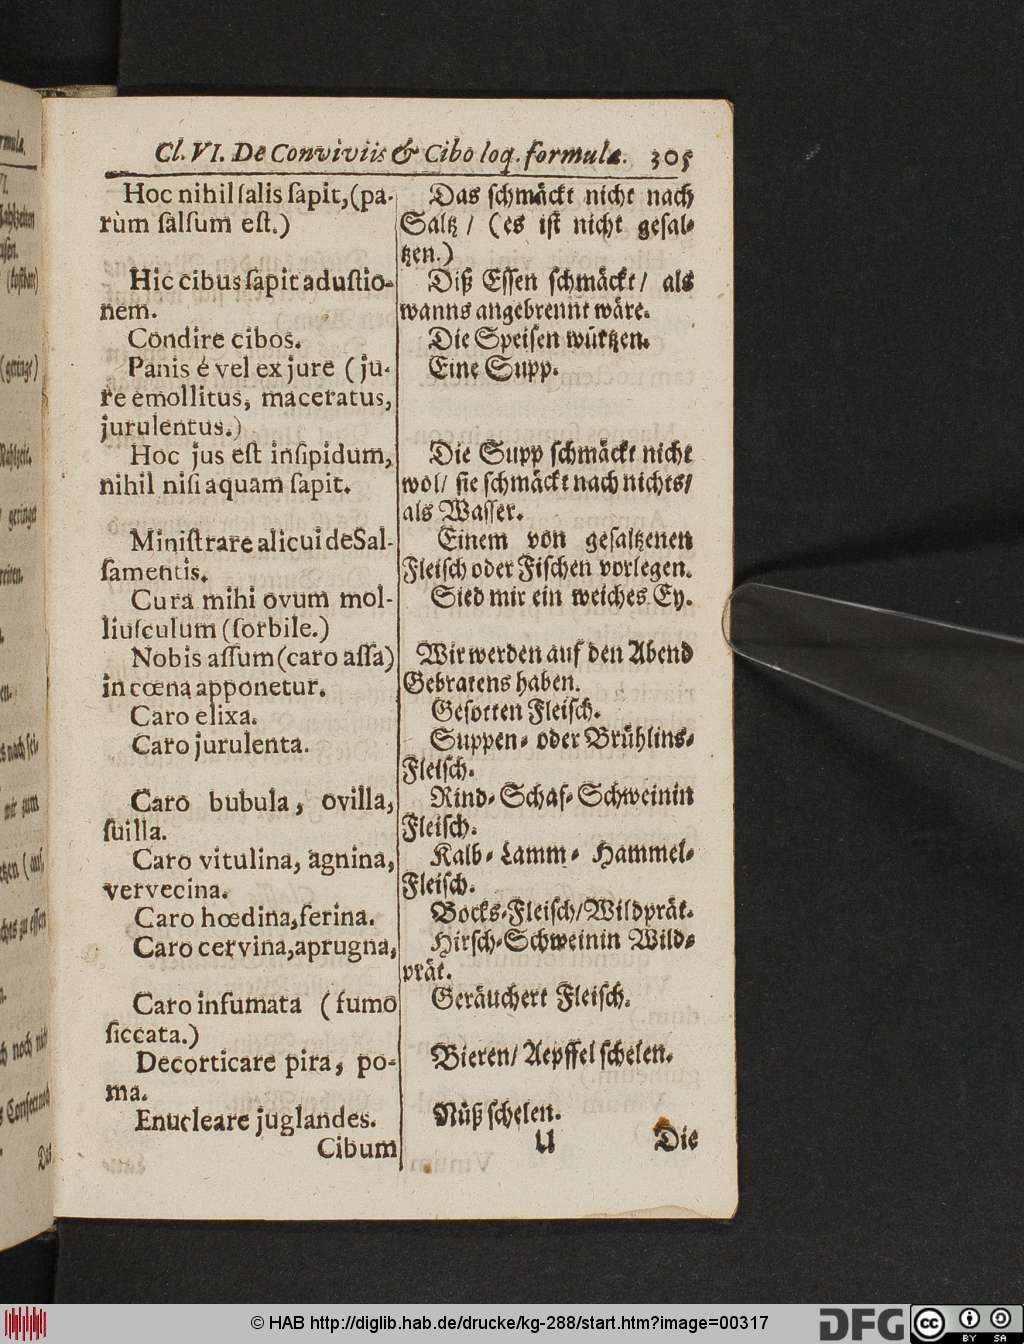 Cl. VI. De Conviviis & Cibo loq. formulæ. 305
Hoc nihil ſalis ſapit, (pa-
rùm ſalſum eſt.)
Hic cibus ſapit aduſtio-
nem.
Condire cibos.
Panis é vel ex jure (ju-
re emollitus, maceratus,
jurulentus.)
Hoc jus eſt inſipidum,
nihil niſi aquam ſapit.
Miniſtrare alicui de Sal-
ſamentis.
Cura mihi ovum mol-
liuſculum (ſorbile.)
Nobis aſſum (caro aſſa)
in cœna apponetur.
Caro elixa.
Caro jurulenta.
Caro bubula, ovilla,
ſuilla.
Caro vitulina, agnina,
vervecina.
Caro hœdina, ferina.
Caro cervina, aprugna,
Caro infumata (fumo
ſiccata.)
Decorticare pira, po-
ma.
Enucleare juglandes.
Cibum
Das ſchmäckt nicht nach
Saltz / (es iſt nicht geſal-
tzen.)
Diß Eſſen ſchmäckt / als
wanns angebrennt wäre.
Die Speiſen würtzen.
Eine Supp.
Die Supp ſchmäckt nicht
wol / ſie ſchmäckt nach nichts /
als Waſſer.
Einem von geſaltzenen
Fleiſch oder Fiſchen vorlegen.
Sied mir ein weiches Ey.
Wir werden auf den Abend
Gebratens haben.
Geſotten Fleiſch.
Suppen- oder Brühlins-
Fleiſch.
Rind- Schaf- Schweinin
Fleiſch.
Kalb- Lamm- Hammel-
Fleiſch.
Bocks-Fleiſch / Wildprät.
Hirſch-Schweinin Wild-
prät.
Geräuchert Fleiſch.
Bieren / Aepffel ſchelen.
Nüß ſchelen.
U Die
© HAB http://diglib.hab.de/drucke/kg-288/start.htm?image=00317
DFG
cc
BY SA